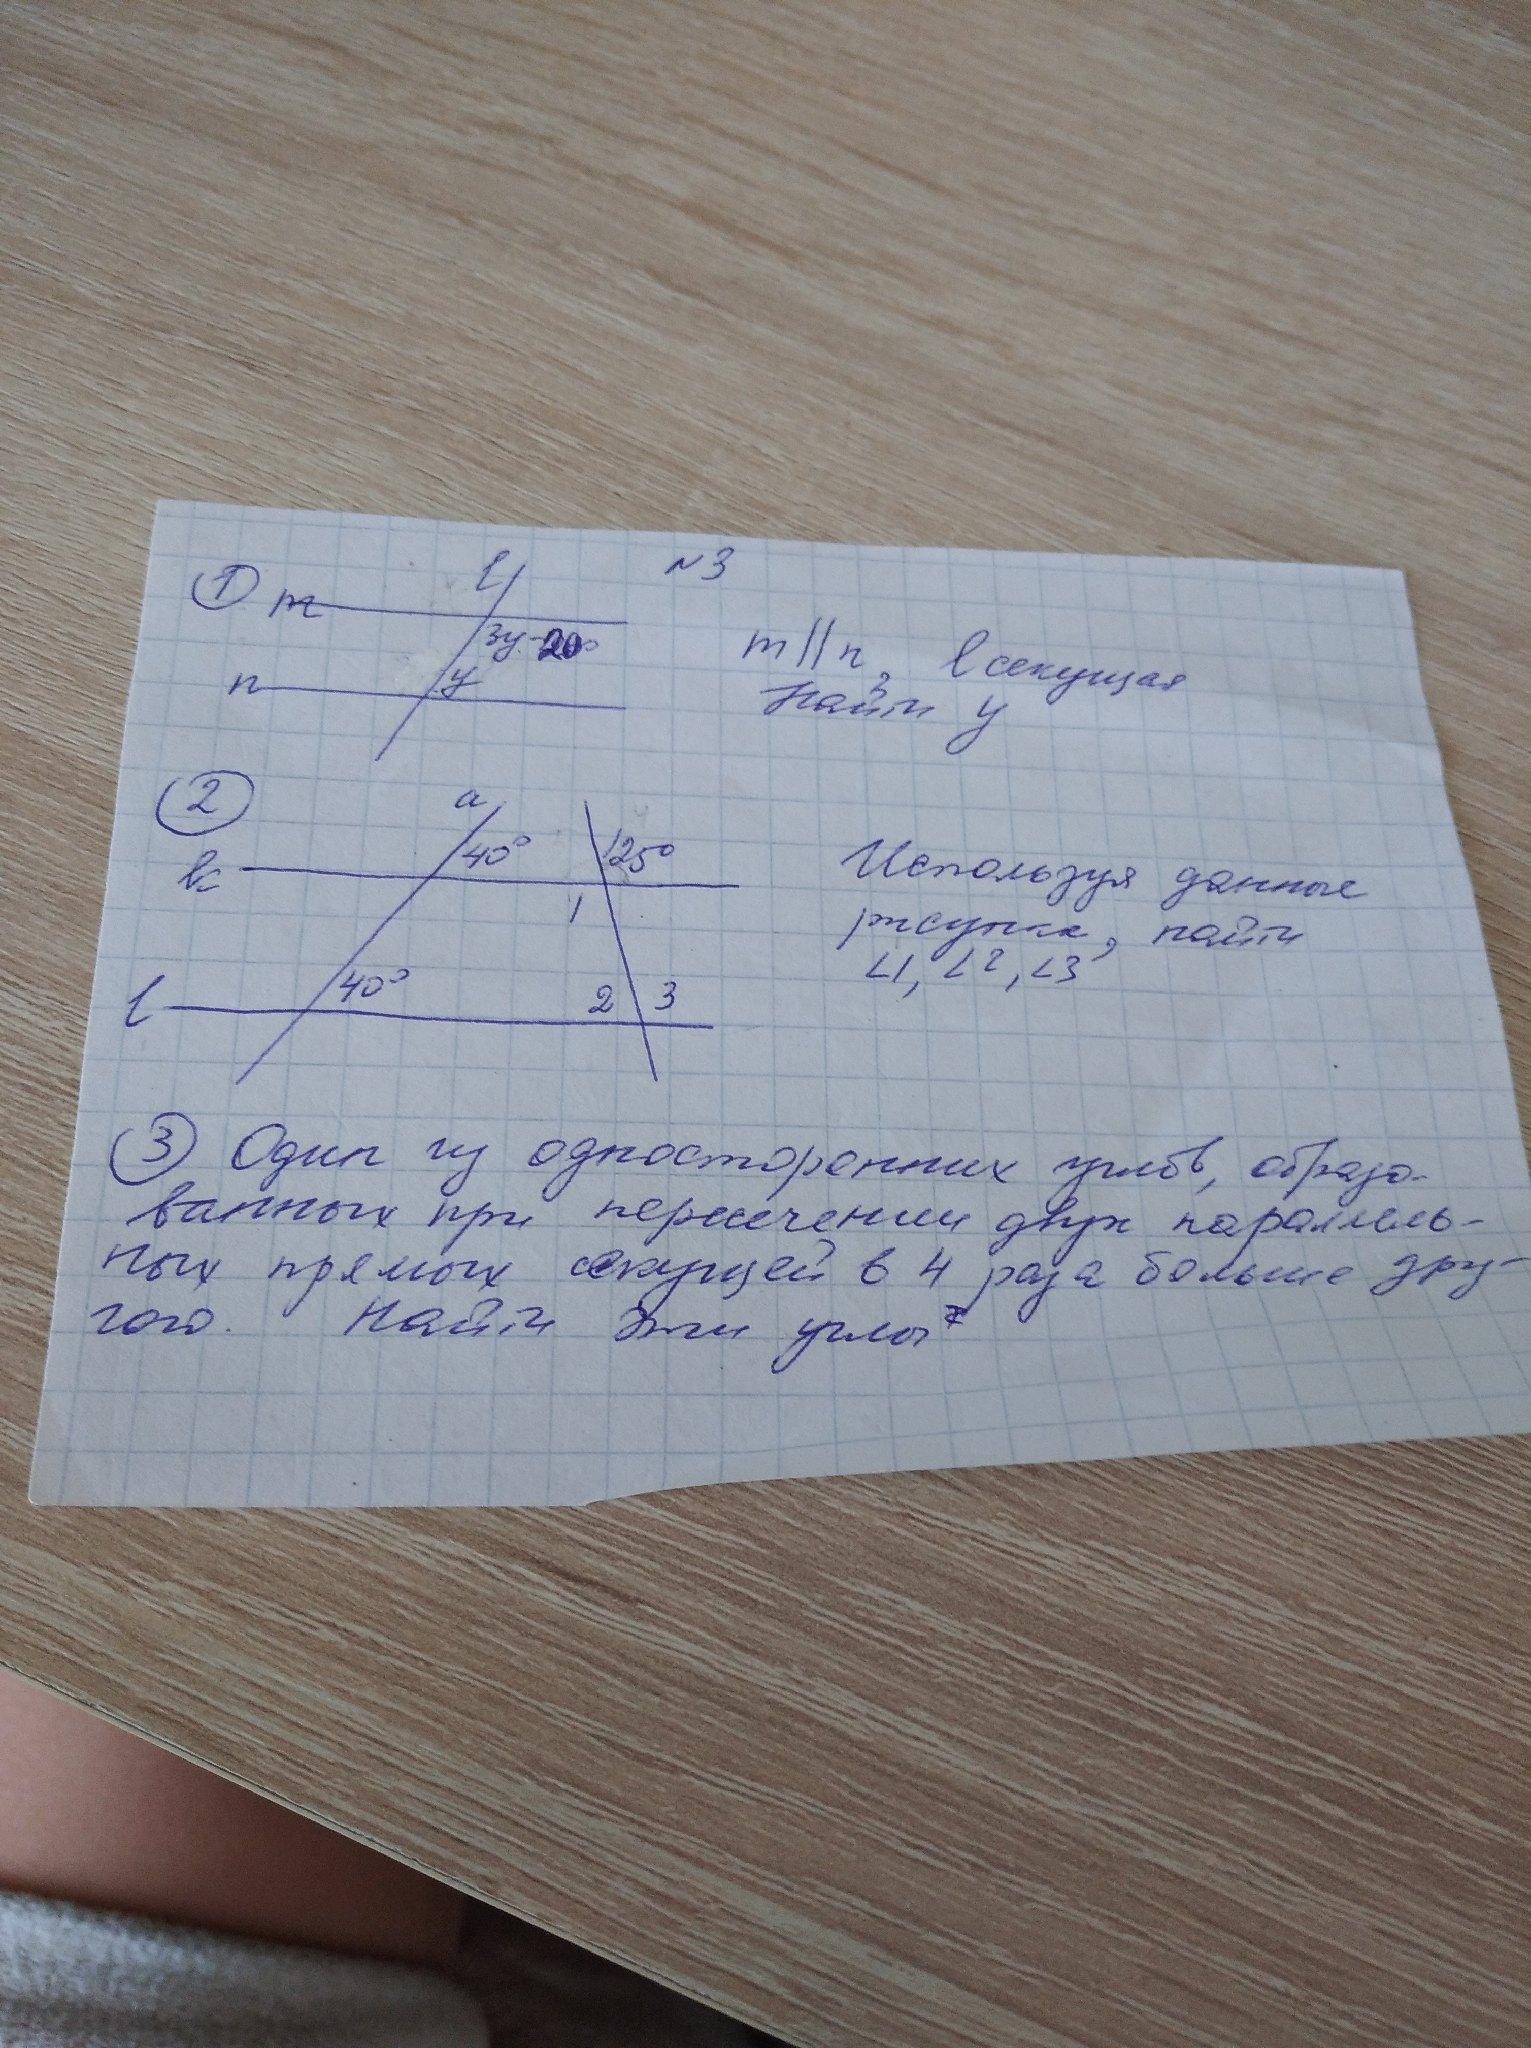 №3
① m l
3y-20°
n y
m||n, l секущая
Найти y
② a
к 40° 125°
1
l 40° 2 3
Используя данные
рисунка, найти
∠1, ∠2, ∠3
③ Один из односторонних углов, образо-
ванных при пересечении двух параллель-
ных прямых секущей в 4 раза больше дру-
гого. Найти эти углы